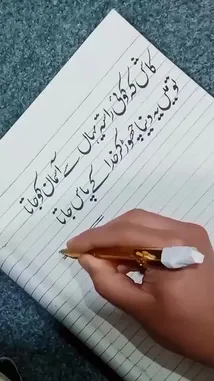 کاش کہ کوئی راستہ یہاں سے آسمان کو جاتا
تو میں یہ دنیا چھوڑ کر خدا کے پاس جاتا